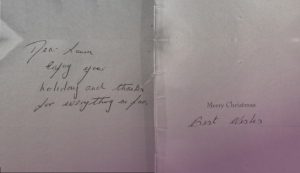 Dear
Enjoy your
holiday and thanks
for everything so far.
Merry Christmas
Best Wishes